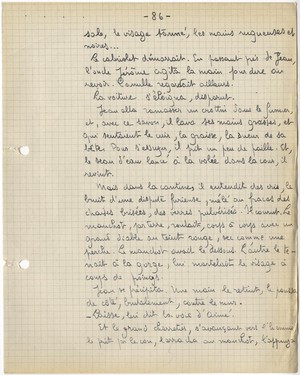 - 86 -
sale, le visage tanné, les mains rugueuses et
noires...
Le cabriolet démarrait. En passant près de Jean,
l'oncle Jérôme agita la main pour dire au
revoir. Camille regardait ailleurs.
La voiture s'éloigna, disparut.
Jean alla ramasser un crottin dans le fumier,
et, avec ce savon, il lava ses mains grasses, et
qui sentaient le cuir, la graisse, la sueur de la
bête. Puis s'essuya, il prit un peu de paille. Et,
le seau d'eau lancé à la volée dans la cour, il
revint.
Mais dans la cantine il entendit des cris, le
bruit d'une dispute furieuse, mêlé au fracas des
chaises brisées, des verres pulvérisés. Il accourut. Le
manchot, par terre, roulait, corps à corps avec un
grand diable au teint rouge, sec comme une
perche. Le manchot avait le dessous. L'autre le te-
nait à la gorge, lui martelait le visage à
coups de poings.
Jean se précipita. Une main le retint, le poussa
de côté, brutalement, contre le mur.
- Laisse, lui dit la voix d'aîné.
Et le grand charretier, s'avançant vers l'homme
le prit par le cou, l'arracha au manchot, l'appuya